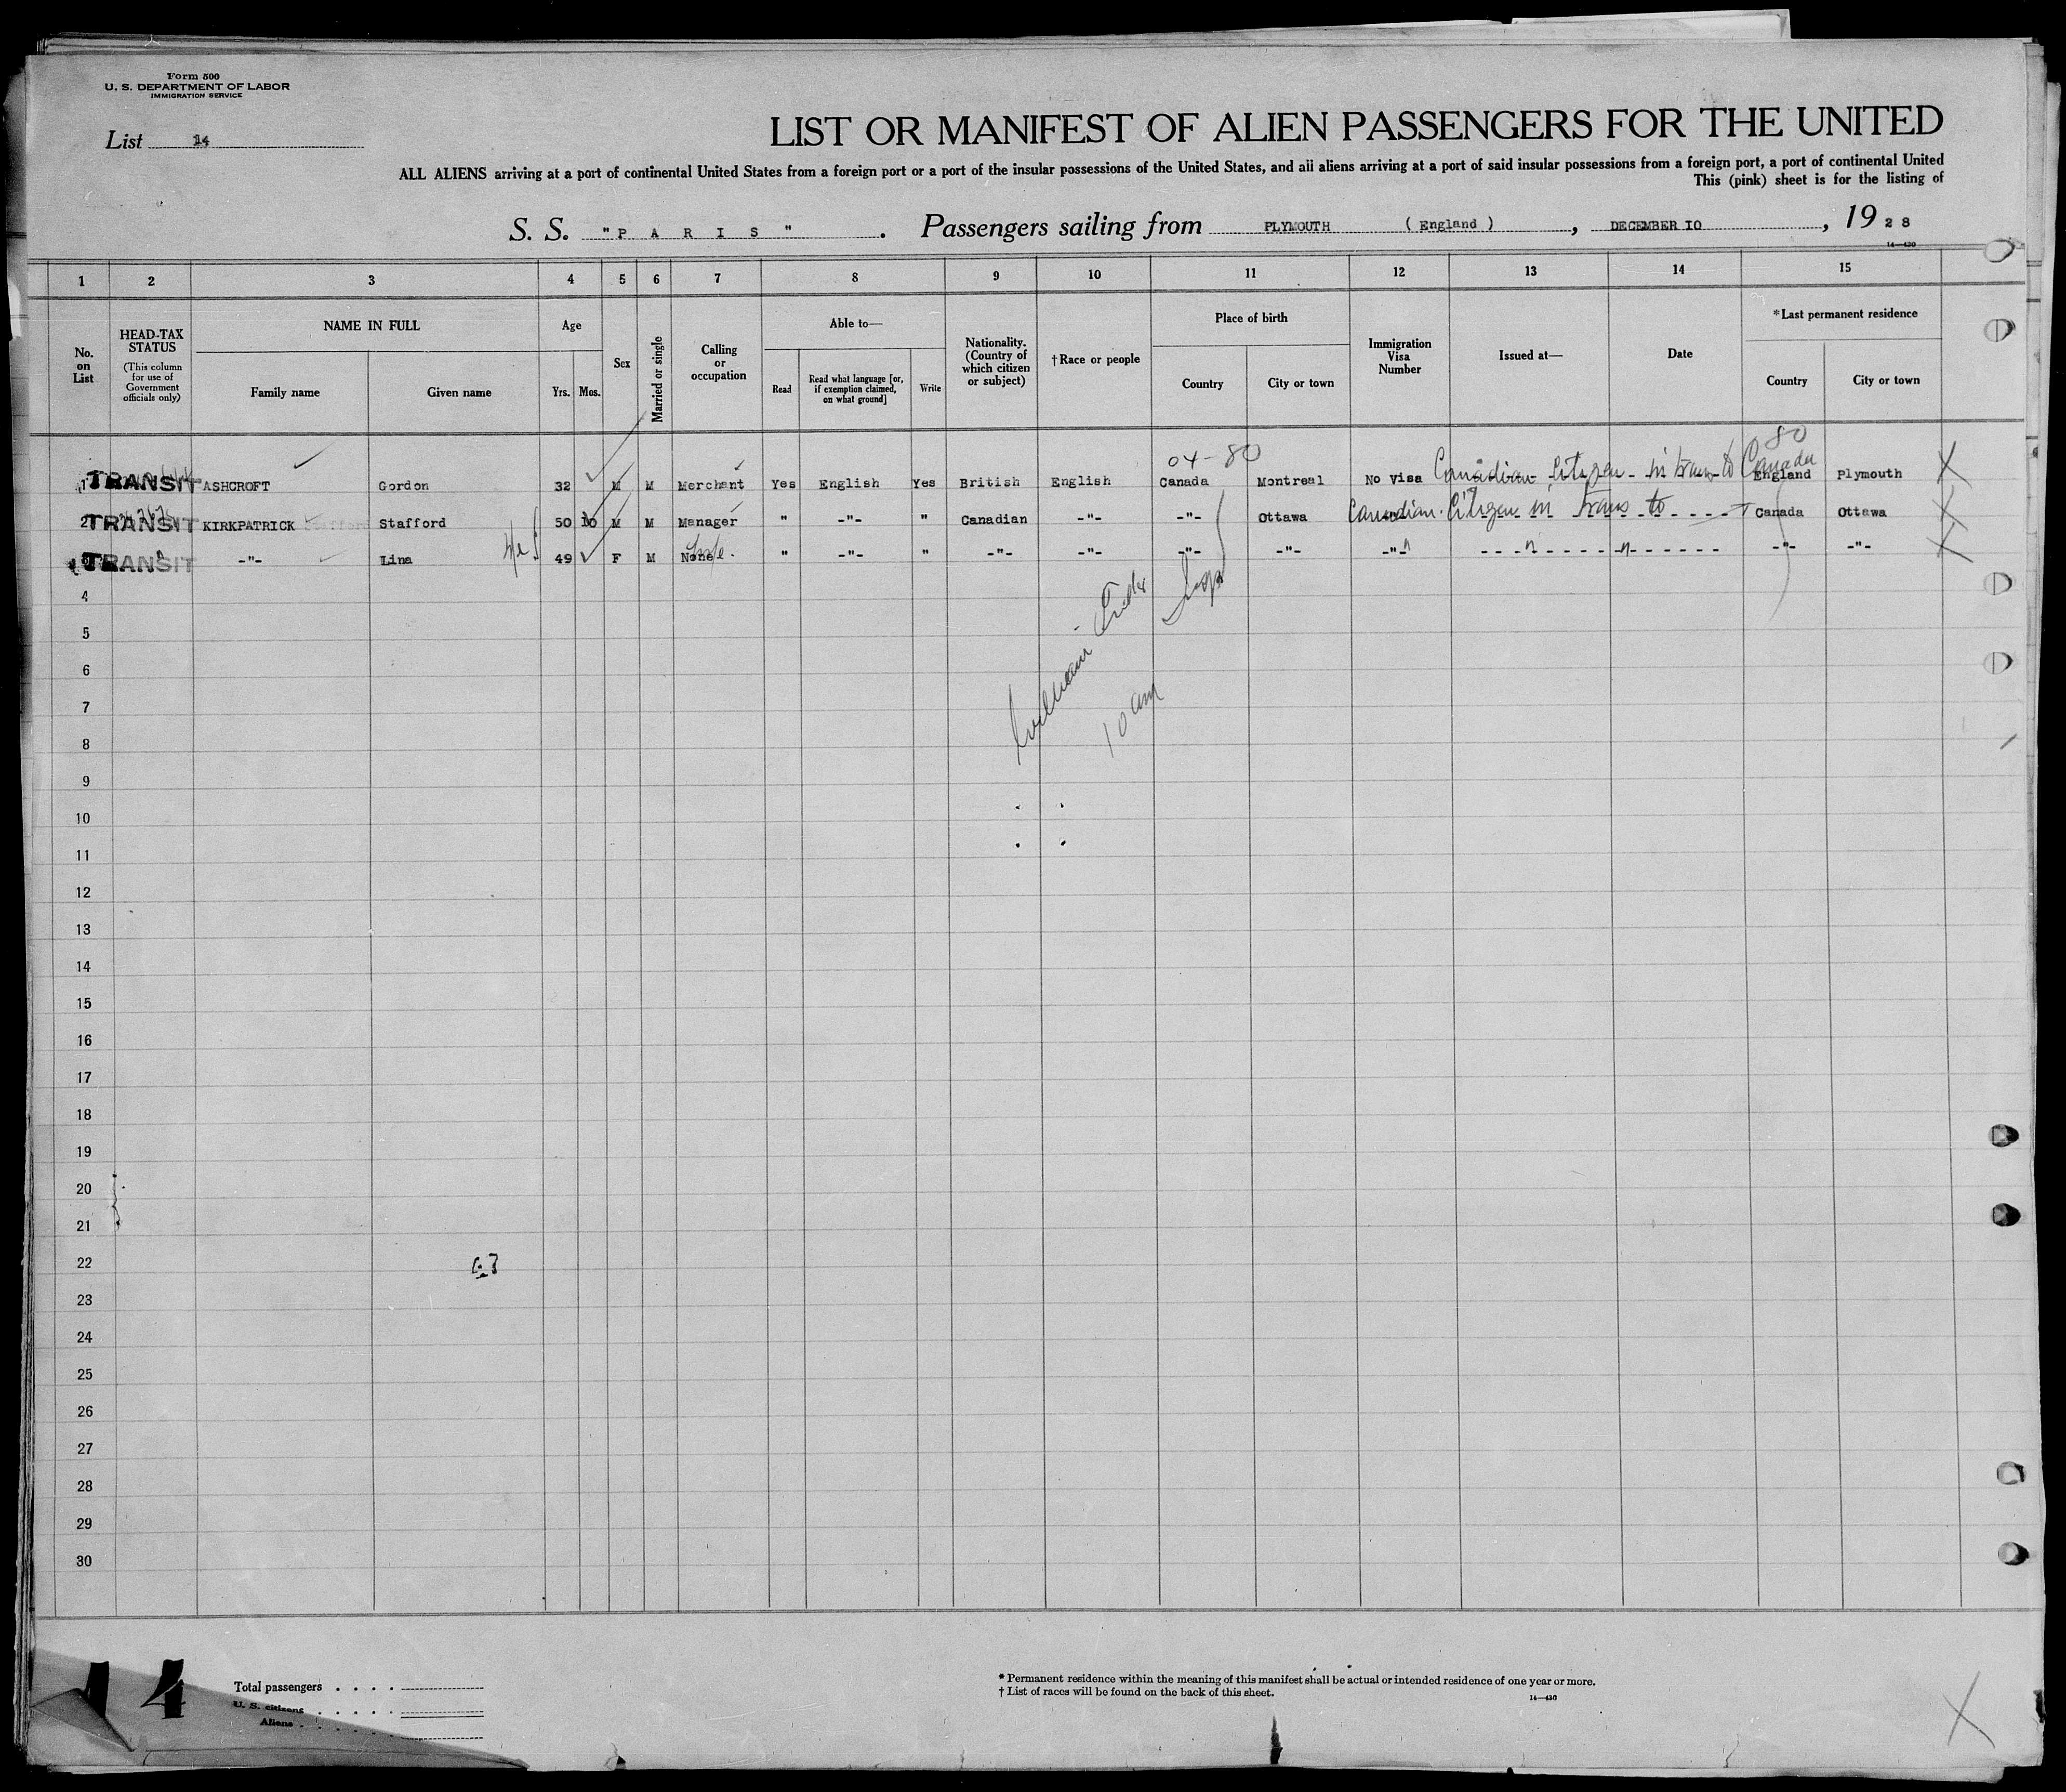 Form 500
U. S. DEPARTMENT OF LABOR
IMMIGRATION SERVICE
List 14
LIST OR MANIFEST OF ALIEN PASSENGERS FOR THE UNITED
ALL ALIENS arriving at a port of continental United States from a foreign port or a port of the insular possessions of the United States, and all aliens arriving at a port of said insular possessions from a foreign port, a port of continental United
This (pink) sheet is for the listing of
S. S. "P A R I S" . Passengers sailing from PLYMOUTH ( England ) , DECEMBER IO , 19 2 8
14—430
1 2 3 4 5 6 7 8 9 10 11 12 13 14 15
No. on List
HEAD-TAX STATUS
(This column for use of Government officials only)
NAME IN FULL
Family name
Given name
Age
Yrs. Mos.
Sex
Married or single
Calling or occupation
Able to—
Read
Read what language [or, if exemption claimed, on what ground]
Write
Nationality. (Country of which citizen or subject)
†Race or people
Place of birth
Country
City or town
Immigration Visa Number
Issued at—
Date
*Last permanent residence
Country
City or town
04-80
80
1 TRANSIT ASHCROFT Gordon 32 M M Merchant Yes English Yes British English Canada Montreal No Visa Canadian Citizen in trans to Canada England Plymouth X
2 TRANSIT KIRKPATRICK Stafford 50 10 M M Manager " -"- " Canadian -"- -"- Ottawa Canadian Citizen in trans to Canada Ottawa X
TRANSIT -"- Lina 49 F M None " -"- " -"- -"- -"- -"- -"- " " -"- -"- X
4
5
6
7
8
10 am
9
10
11
12
13
14
15
16
17
18
19
20
21
22
23
24
25
26
27
28
29
30
14
Total passengers . . . .
U. S. citizens . . . . .
Aliens . . . . . .
* Permanent residence within the meaning of this manifest shall be actual or intended residence of one year or more.
† List of races will be found on the back of this sheet.
14—430
X